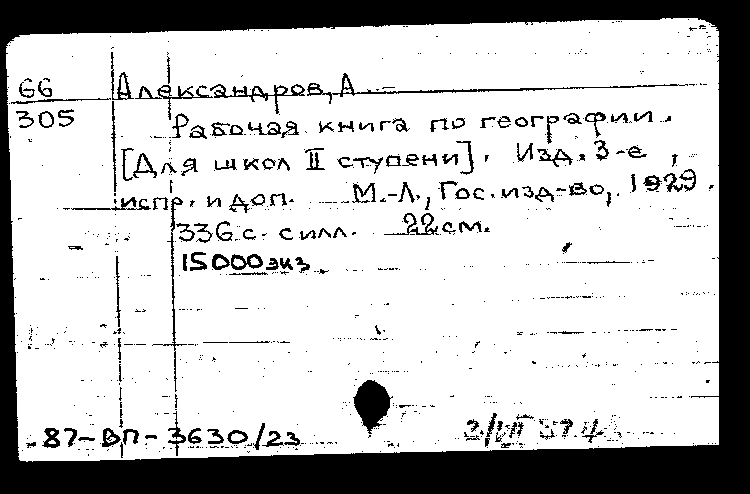 66 Александров, А
305 Рабочая книга по географии.
[Для школ II ступени]. Изд. 3-е,
испр. и доп. М.-Л., Гос. изд-во, 1929.
336 с. с илл. 22 см.
15000 экз.
87-ВП-3630/23 3/VII